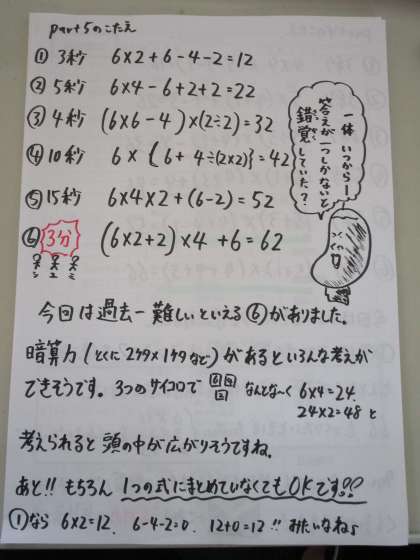 part5のこたえ
① 3秒 6×2+6-4-2=12
② 5秒 6×4-6+2+2=22
③ 4秒 (6×6-4)×(2÷2)=32
④ 10秒 6×{6+4÷(2×2)}=42
⑤ 15秒 6×4×2+(6-2)=52
⑥ 3分 (6×2+2)×4+6=62
一体いつからー
答えが一つしかないと
錯覚していた?
今回は過去一難しいといえる⑥がありました。
暗算力(とくに2ケタ×1ケタなど)があるといろんな考えが
できそうです。3つのサイコロで なんとな〜く 6×4=24.
24×2=48 と
考えられると頭の中が広がりそうですね。
あと!! もちろん 1つの式にまとめていなくてもOKです!!
①なら 6×2=12. 6-4-2=0. 12+0=12!! みたいなね